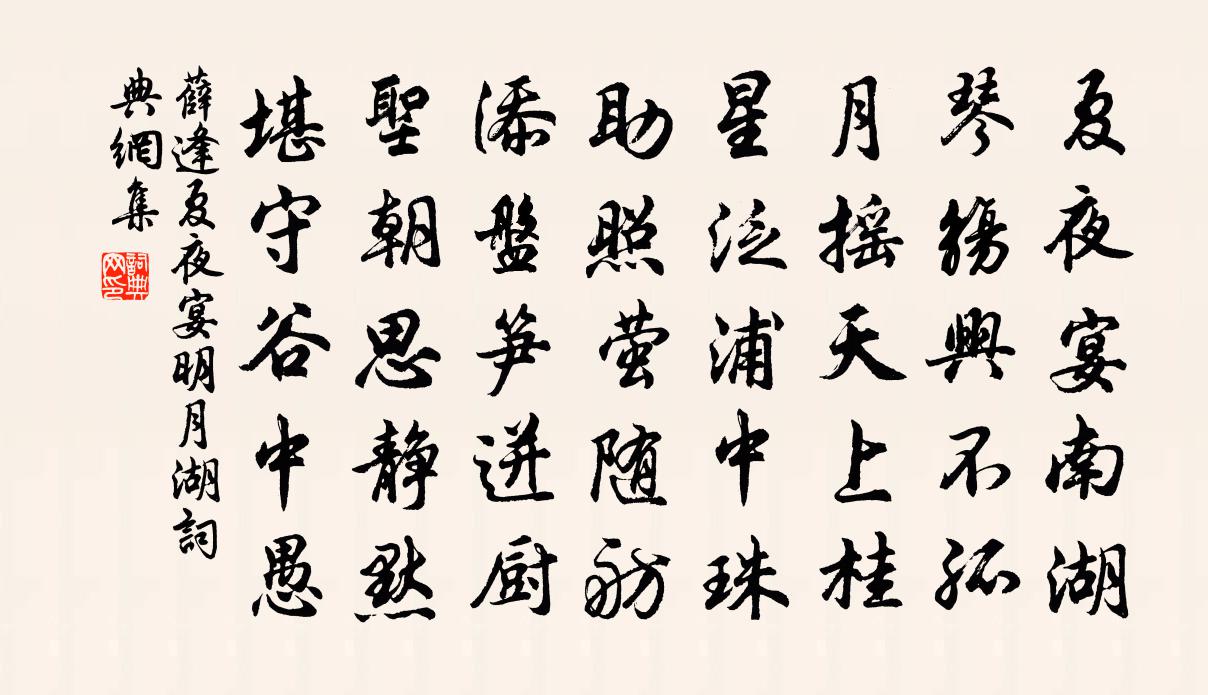 夏夜宴南湖
琴觴興不孤
月摇天上桂
星泛浦中珠
助照萤随舫
添盤笋迸厨
聖朝思静默
堪守谷中愚
薛逢夏夜宴明月湖詞
典網集
詞典网印